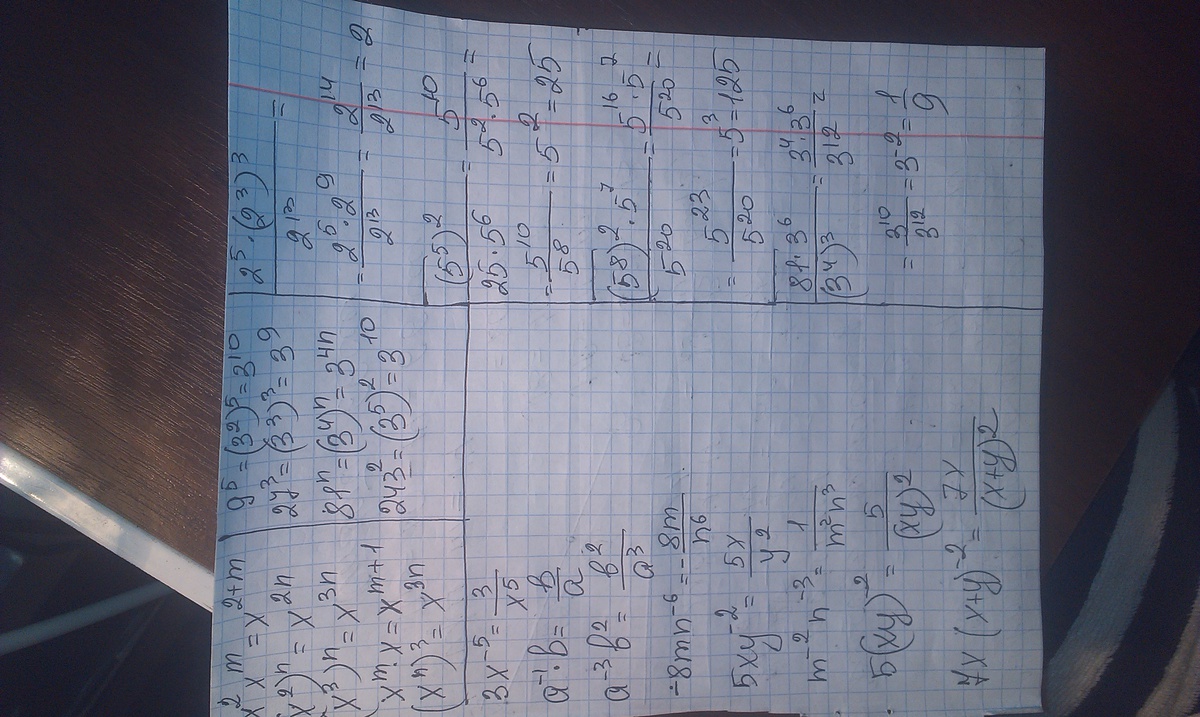 x² xᵐ = x²⁺ᵐ
(x²)ⁿ = x²ⁿ
(x³)ⁿ = x³ⁿ
xᵐ·x = xᵐ⁺¹
(xⁿ)³ = x³ⁿ
9⁵ = (3²)⁵ = 3¹⁰
27³ = (3³)³ = 3⁹
81ⁿ = (3⁴)ⁿ = 3⁴ⁿ
243² = (3⁵)² = 3¹⁰
3x⁻⁵ = 3/x⁵
a⁻¹·b = b/a
a⁻³b² = b²/a³
-8mn⁻⁶ = -8m/n⁶
5xy⁻² = 5x/y²
m⁻²n⁻³ = 1/m²n³
5(xy)⁻² = 5/(xy)²
7x(x+y)⁻² = 7x/(x+y)²
2⁵·(2³)³/2¹³ =
= 2⁵·2⁹/2¹³ = 2¹⁴/2¹³ = 2
(5⁵)²/25·5⁶ = 5¹⁰/5²·5⁶ =
= 5¹⁰/5⁸ = 5² = 25
(5⁸)²·5⁷/5²⁰ = 5¹⁶·5⁷/5²⁰ =
= 5²³/5²⁰ = 5³ = 125
81·3⁶/(3⁴)³ = 3⁴·3⁶/3¹² =
= 3¹⁰/3¹² = 3⁻² = 1/9